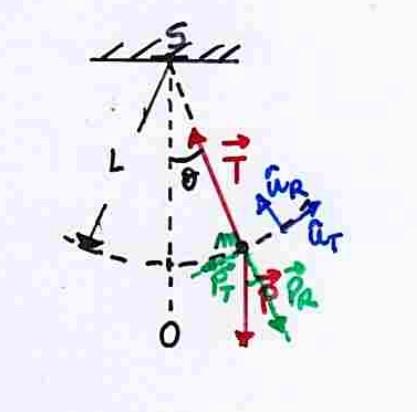 S
L
θ
T
û_R
û_T
m
P_T
P
P_R
O